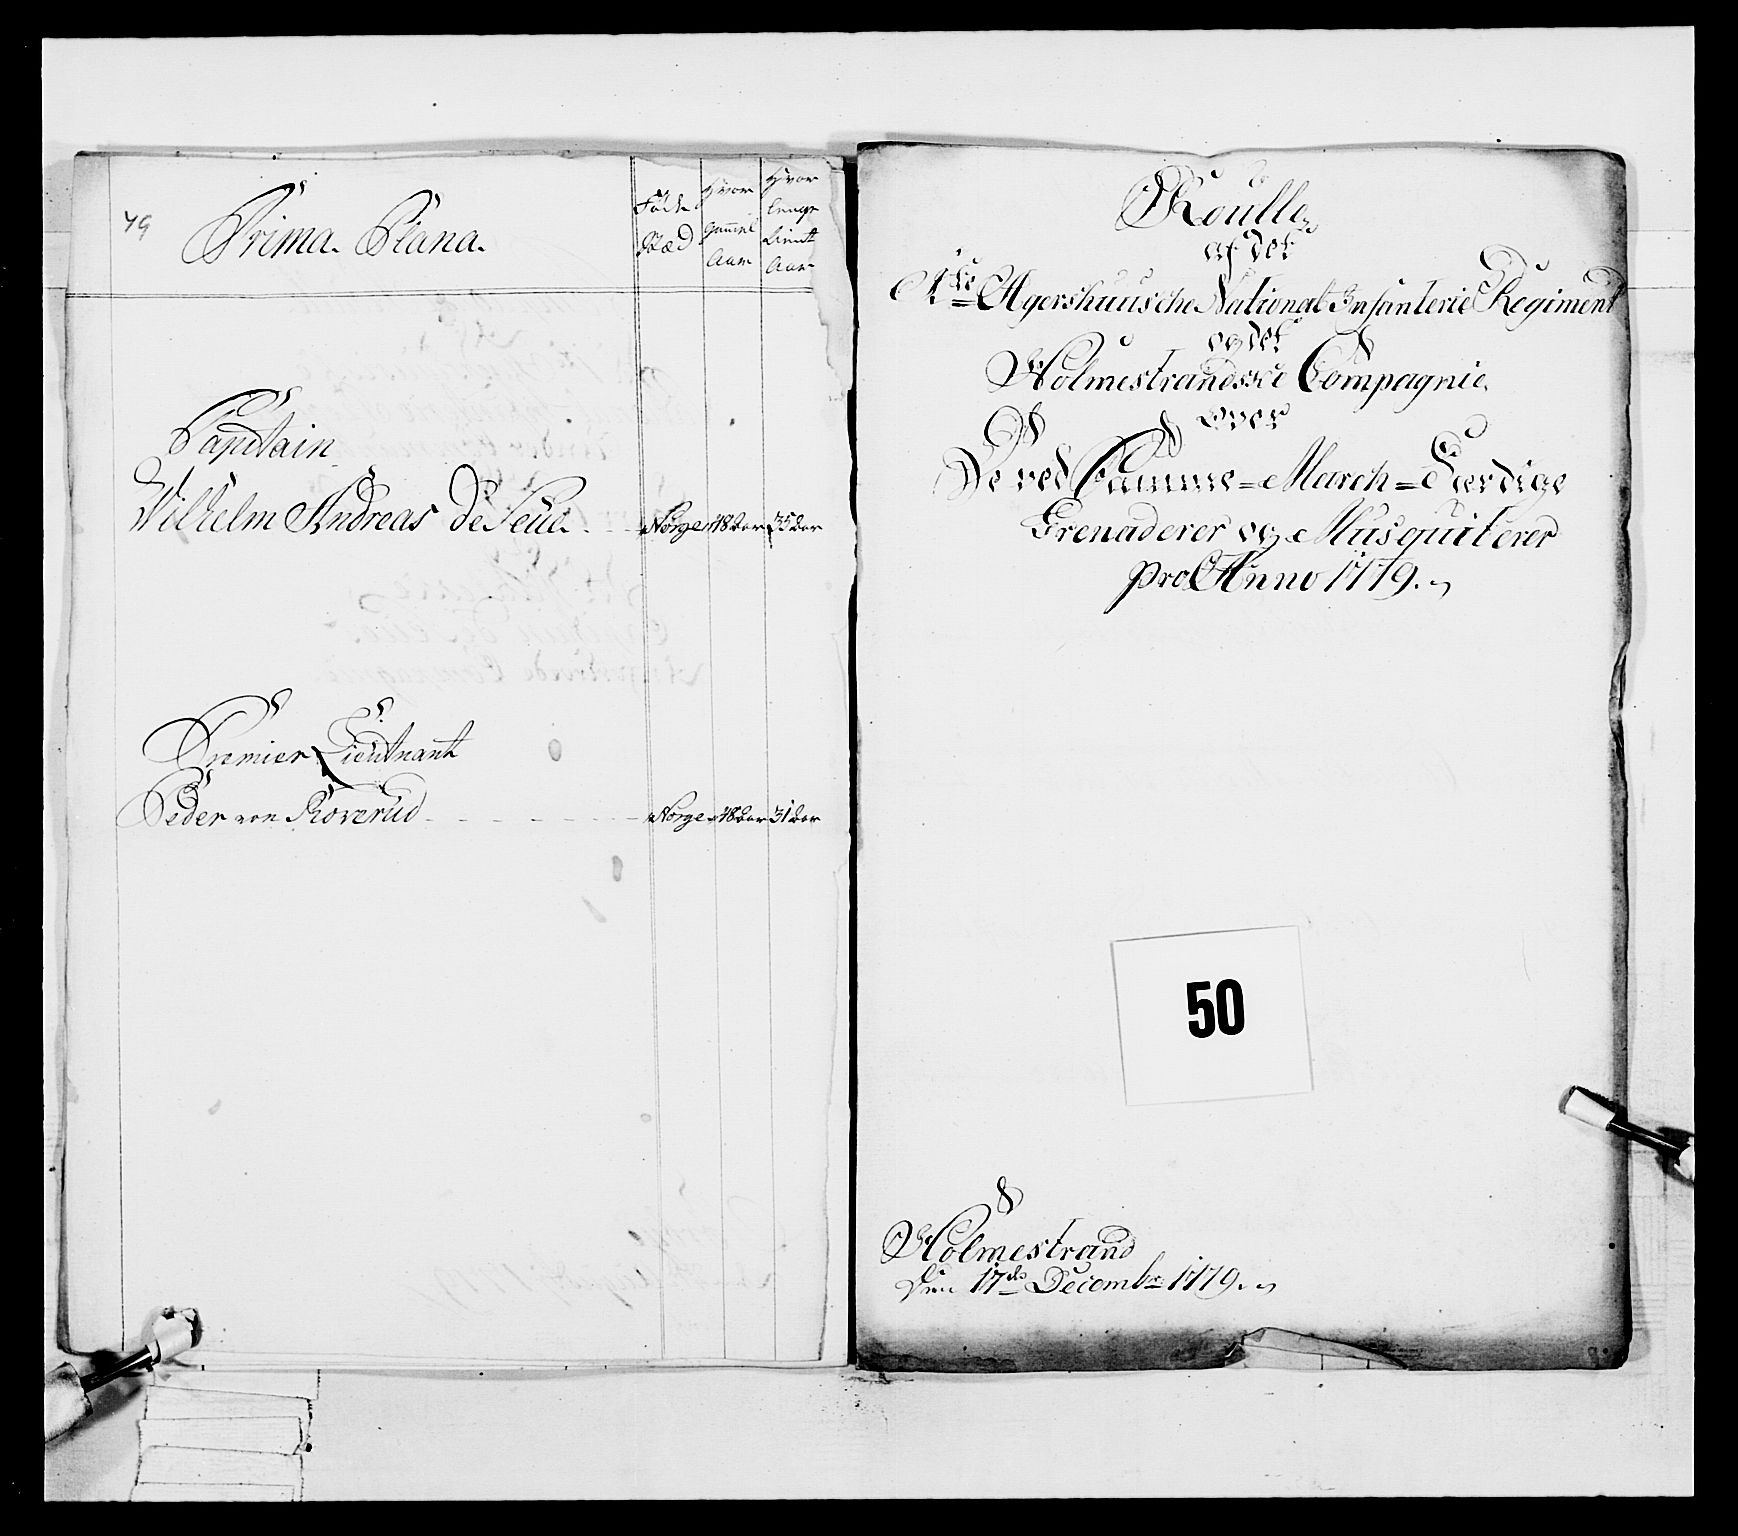 49
Prima Plana.
Føde Stæd
Hvor gammel Aar
Hvor lenge tient Aar
Capitain
Wilhelm Andreas de Seue Norge 48 Aar 35 Aar
Premier Lieutnant
Peder von Roverud Norge 48 Aar 31 Aar
Roulle
af det
1ste Agershuusche National Infanterie Regiment
og det
Holmestrandske Compagnie
over
De ved Samme=March=Færdige
Grenaderer og Musquiterer
pro Anno 1779.
50
Holmestrand
Den 17de Decembr 1779.